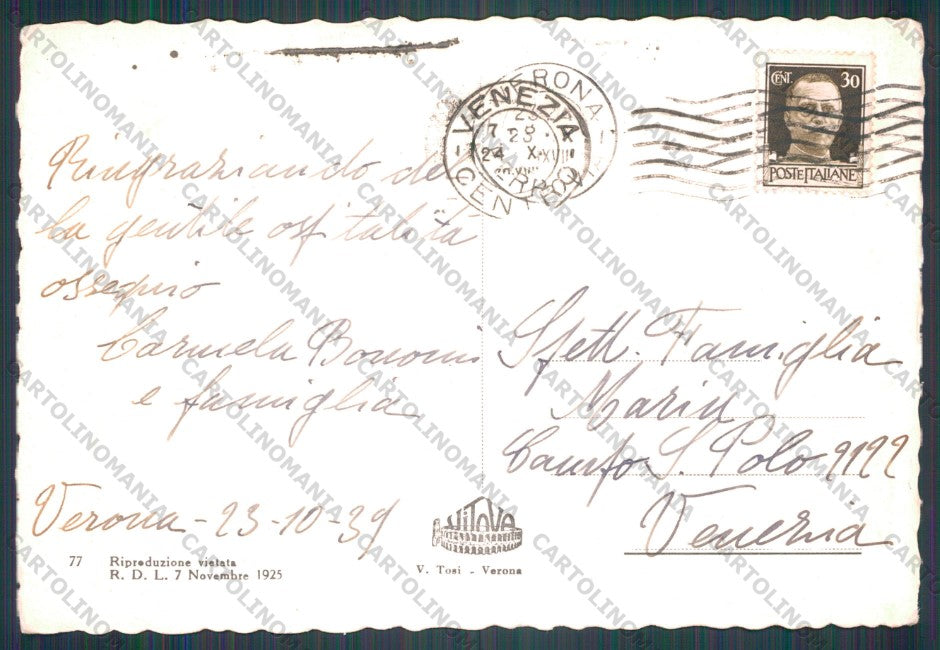 Ringraziando del
la gentile ospitalità
ossequio
Carmela Bonomi
e famiglia
Verona - 23-10-39
77 Riproduzione vietata
R. D. L. 7 Novembre 1925
VITOVE
V. Tosi - Verona
VERONA
VENEZIA
CENTRO
CENT. 30
POSTE ITALIANE
Spett. Famiglia
Marin
Campo S. Polo 2122
Venezia
CARTOLINOMANIA